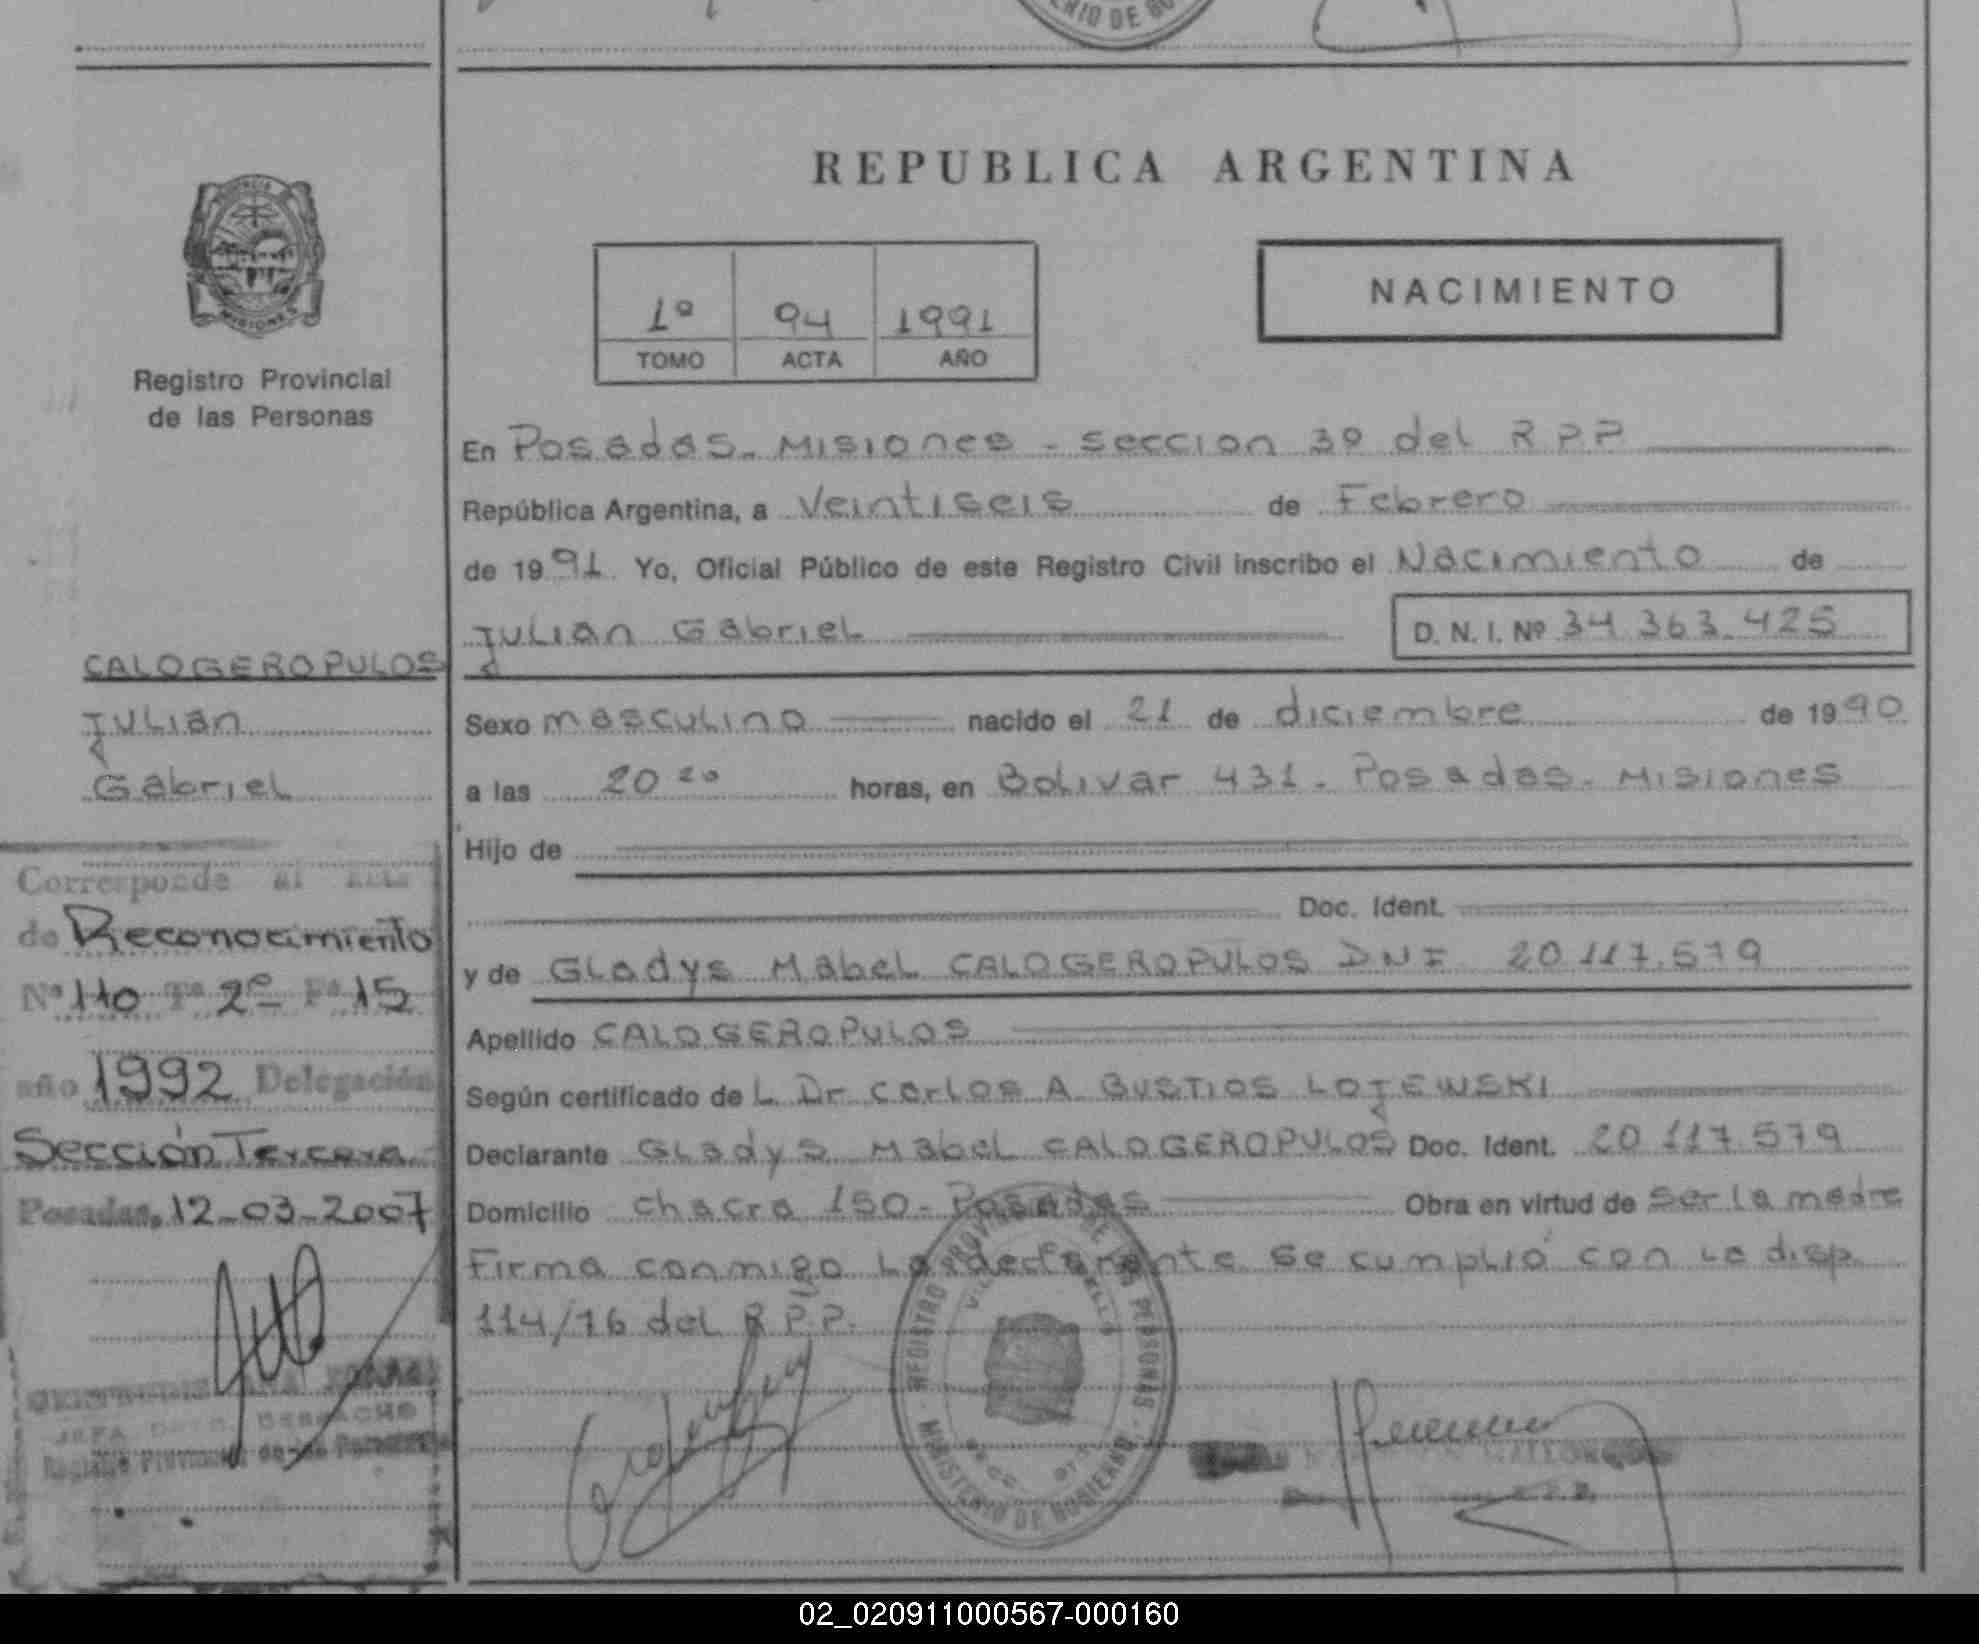 REPUBLICA ARGENTINA
MISIONES
Registro Provincial
de las Personas
1º 94 1991
TOMO ACTA AÑO
NACIMIENTO
En Posadas. Misiones - seccion 3º del R.P.P
República Argentina, a Veintiseis de Febrero
de 1991. Yo, Oficial Público de este Registro Civil inscribo el Nacimiento de
Julián Gabriel
D. N. I. Nº 34.363.425
CALOGEROPULOS
Julián
Gabriel
Sexo masculino nacido el 21 de diciembre de 1990
a las 20 20 horas, en Bolivar 431 - Posadas. Misiones
Hijo de
Doc. Ident.
y de Gladys Mabel CALOGEROPULOS DNI 20.117.579
Apellido CALOGEROPULOS
Según certificado de L Dr Carlos A. BUSTIOS LOJEWSKI
Declarante Gladys Mabel CALOGEROPULOS Doc. Ident. 20.117.579
Domicilio chacra 150 - Posadas Obra en virtud de ser la madre
Firma conmigo la declarante se cumplió con la disp.
114/76 del R.P.P.
Corresponde al Acta
de Reconocimiento
Nº 110 Tº 2º Fº 15
año 1992 Delegación
Sección Tercera
Posadas, 12-03-2007
JEFA DPTO. DESPACHO
Registro Provincial de las Personas
MINISTERIO DE GOBIERNO
02_020911000567-000160